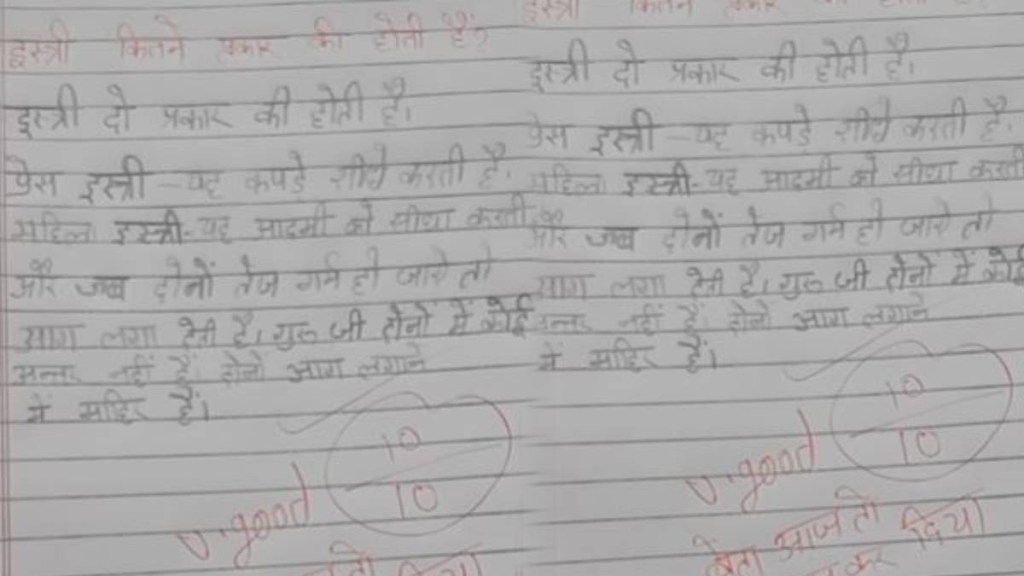 इस्त्री कितने प्रकार की होती है?
इस्त्री दो प्रकार की होती है।
प्रेस इस्त्री – यह कपड़े सीधे करती है।
महिला इस्त्री - यह आदमी को सीधा करती
और जब दोनों तेज गर्म हो जाये तो
आग लगा देती है। गुरु जी दोनों में कोई
अन्तर नहीं है। दोनो आग लगाने
में माहिर हैं।
10
10
v.good
इस्त्री दो प्रकार की होती है।
प्रेस इस्त्री – यह कपड़े सीधे करती है।
महिला इस्त्री - यह आदमी को सीधा करती
और जब दोनों तेज गर्म हो जाये तो
आग लगा देती है। गुरु जी दोनों में कोई
अन्तर नहीं है। दोनो आग लगाने
में माहिर हैं।
10
10
v.good
बेटा आज तो
कर दिया